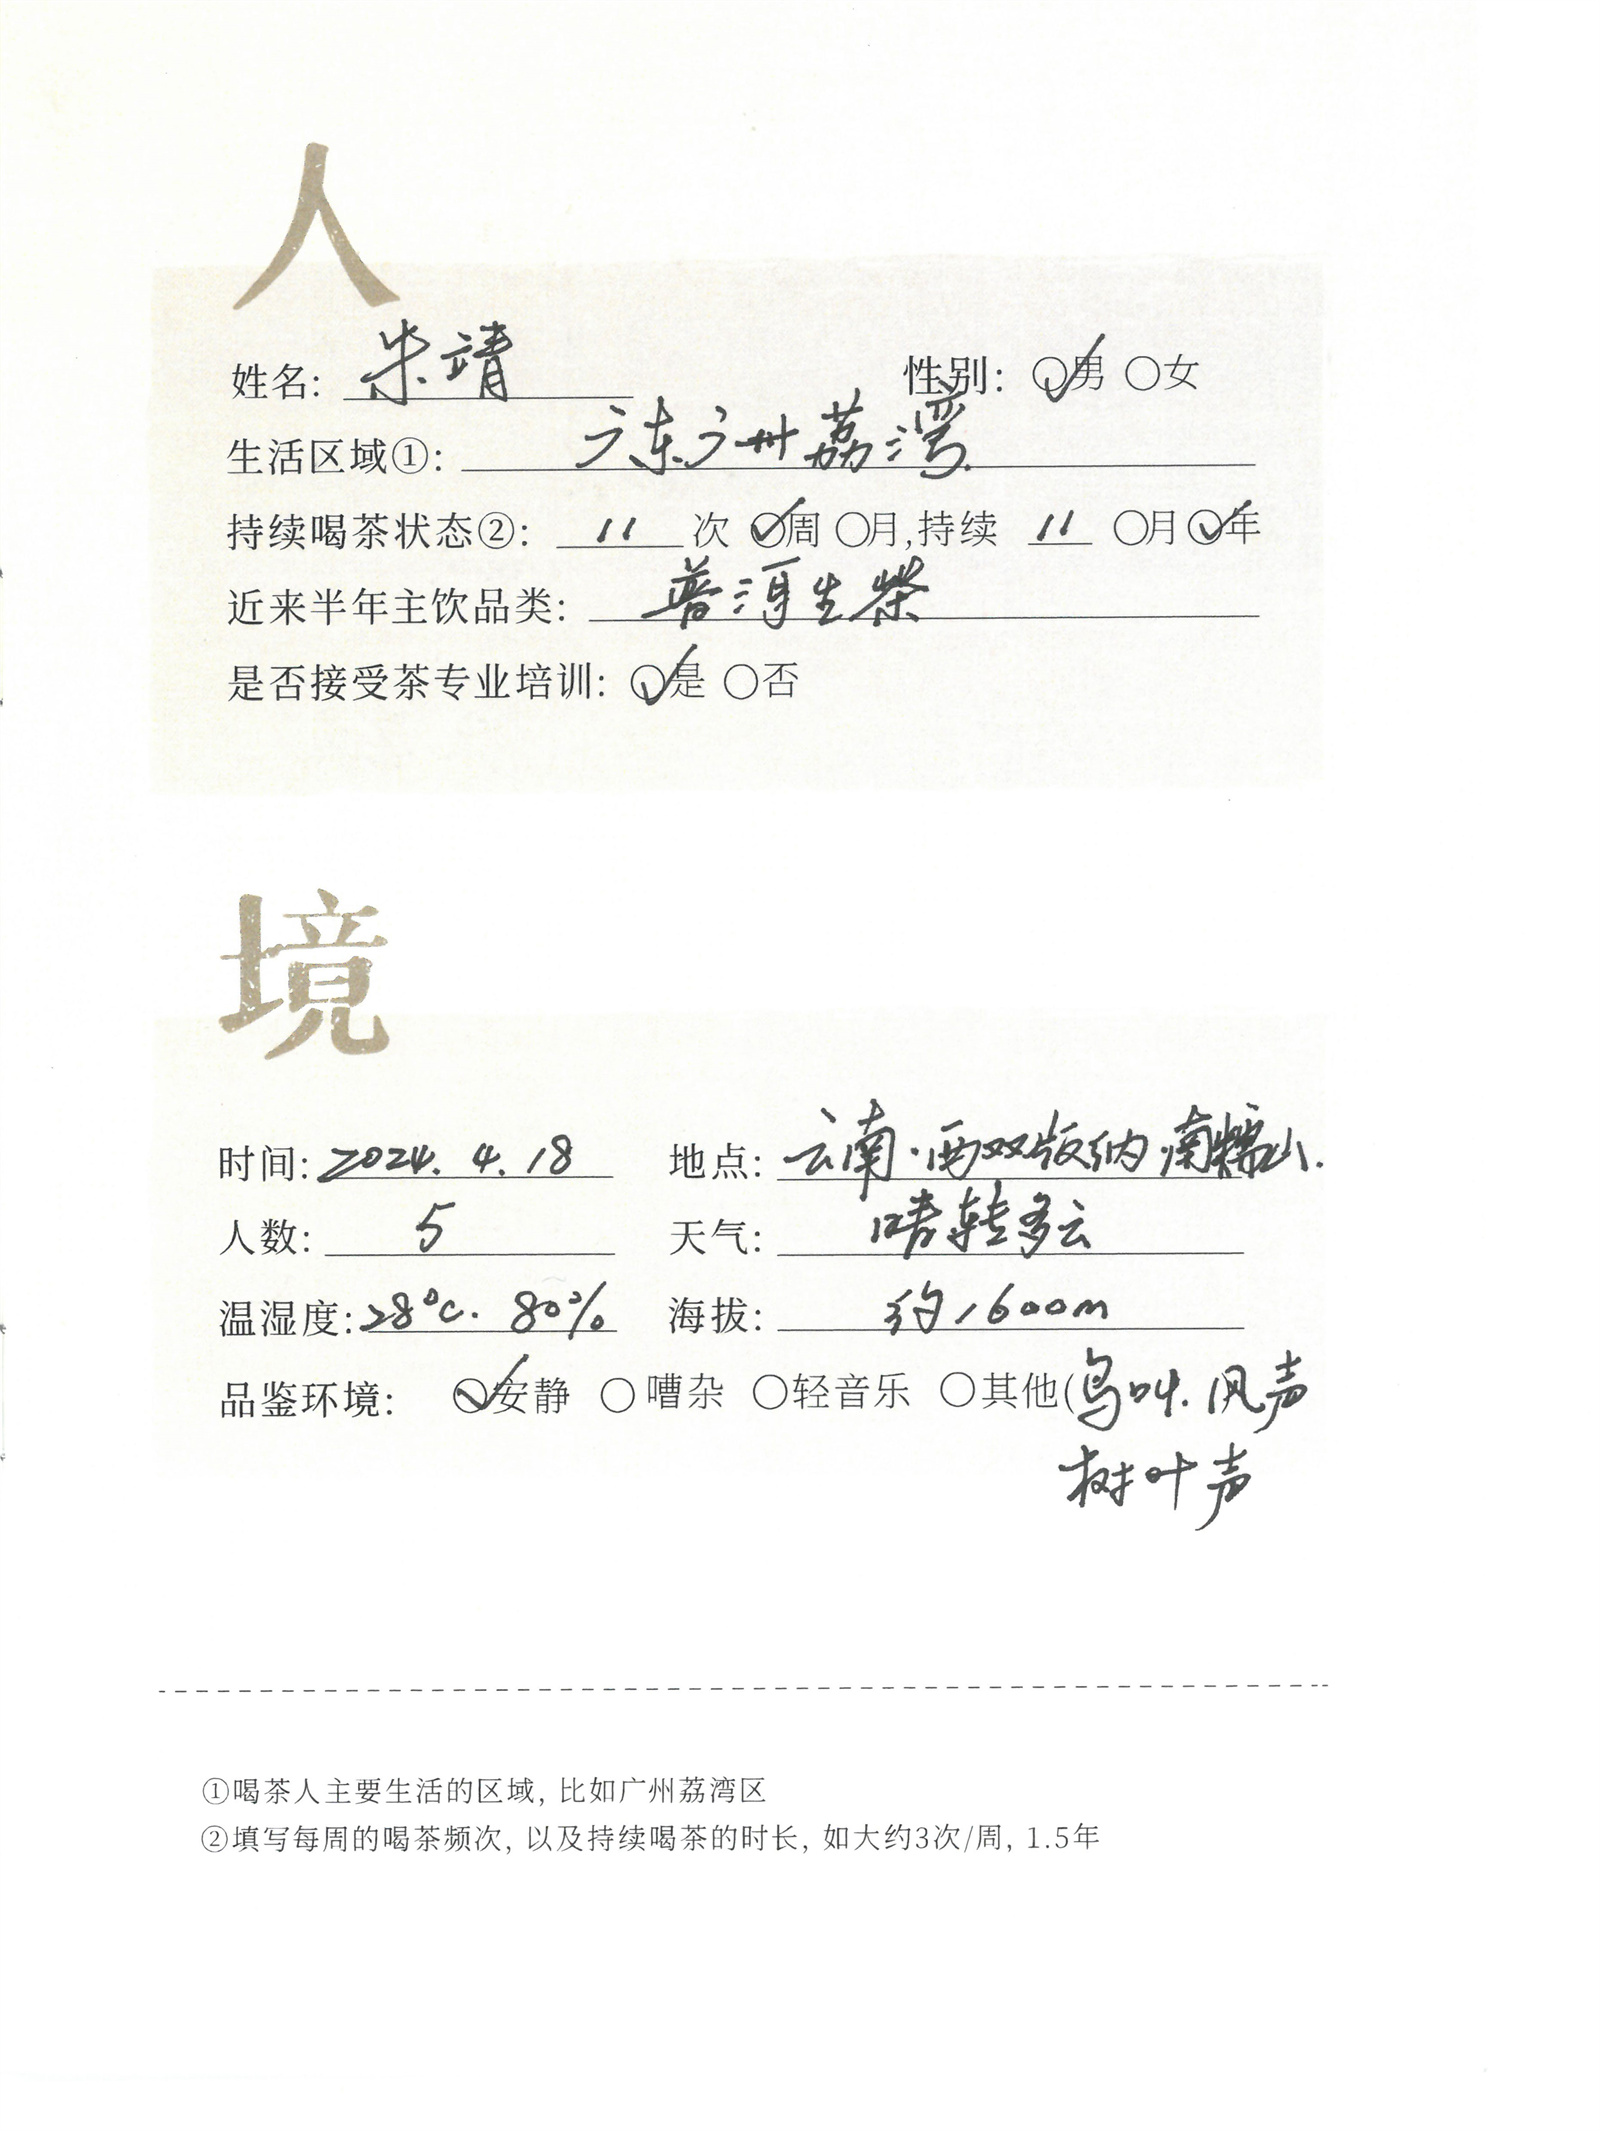 人
姓名: 朱靖 性别: ○✓男 ○女
生活区域①: 广东广州荔湾
持续喝茶状态②: 11 次 ○✓周 ○月,持续 11 ○月 ○✓年
近来半年主饮品类: 普洱生茶
是否接受茶专业培训: ○✓是 ○否
境
时间: 2024.4.18 地点: 云南·西双版纳南糯山.
人数: 5 天气: 晴转多云
温湿度: 28°C. 80% 海拔: 约1600m
品鉴环境: ○✓安静 ○嘈杂 ○轻音乐 ○其他(鸟叫.风声
树叶声
①喝茶人主要生活的区域, 比如广州荔湾区
②填写每周的喝茶频次, 以及持续喝茶的时长, 如大约3次/周, 1.5年